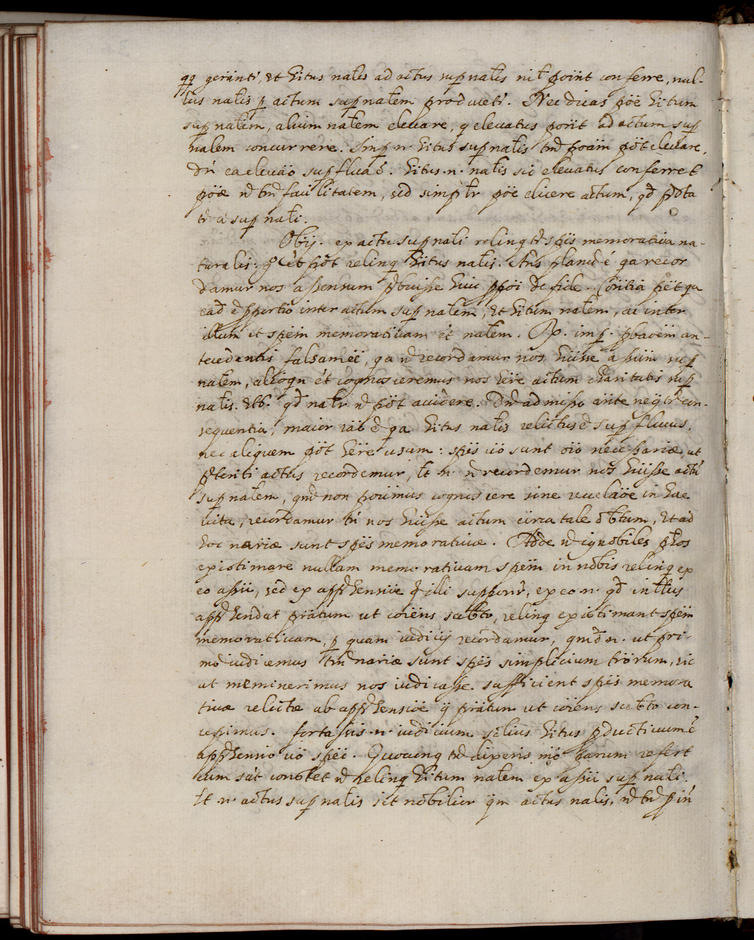 geránt, et hitus nalis ad actus supnalis nil point conferre, nul-
lus nalis p actum supnalem produceti. Nec dicas póe hitum
supnalem, alium nalem elevare, q elevatus point ad actum sup
nalem concurrere. Imp. n. hitus supnalis tm poam pót elevare,
Dn ea elevaó supflua é. hitus .n. nalis sic elevatus conferret
póe n tm facilitatem, sed simplr póe elicere actum, qd pbta
tr a supnali.
Obij. ex actu supnali relinq spēs memorativa na-
turalis: q et pót relinq hitus nalis. Ans plané qa recor
damur nos assensum huic ppoi de fide.
ead é pportio inter actum supnalem, et hitum nalem, ac inter
illum et spém memorativam et nalem. Rp. imp. pbaóem an-
tecedentis falsam eé, qa n recordamur nos huisse actum sup
nalem, alioqn ét cognosceremus nos hére actum charitatis sup
nalis. qd natr n pót accidere. Dn admisso ante negtr con-
sequentia, maior ráo é qa hitus nalis relictus é supfluus,
nec aliquem pót hére usum: spés vó sunt oio necessariae, ut
pteriti actus recordemur, Et n. n recordemur nos huisse actu
supnalem, qm non possumus cognoscere sine revelaóe in hac
vita, recordamur tn nos huisse actum circa tale obtum, et ad
hoc nariae sunt spés memorativae. Adde n ignobiles phos
existimare nullam memorativam spém in nobis relinq ex
eo assu, sed ex apphensióe q illi supponr, ex eo .n. qd intus
apphendat pratum ut cóiens subto, relinq existimant spém
memorativam, p quam iudicij recordamur, qm n. ut pri-
mo iudicemus tm nariae sunt spés simplicium trorum, sic
ut meminerimus nos iudicasse sufficient spés memora
tivae relictae ab apphensióe q pratum ut cóiens subto con-
cepimus. fortassis .n. iudicium solius hitus pductivum é
apphensio vó spéi. Quocunq td dixeris mó parum refert
cum sát constet n relinq hitum nalem ex assu supnali.
Et n. actus supnalis sit nobilior qm actus nalis, n tn